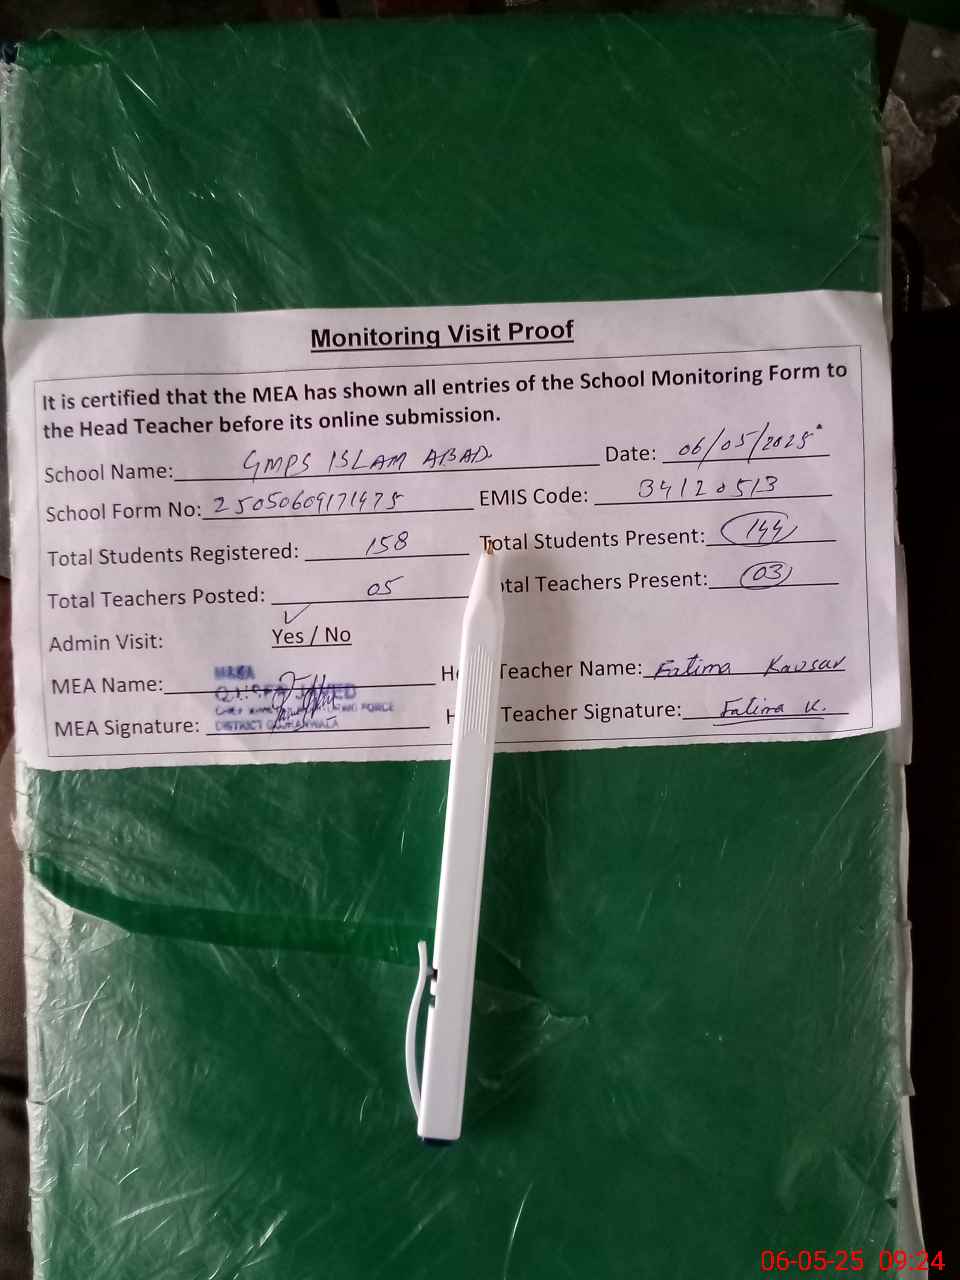 Monitoring Visit Proof
It is certified that the MEA has shown all entries of the School Monitoring Form to
the Head Teacher before its online submission.
School Name: GMPS ISLAM ABAD Date: 06/05/2025
School Form No: 25050609171475 EMIS Code: 34120513
Total Students Registered: 158 Total Students Present: 144
Total Teachers Posted: 05 otal Teachers Present: 03
Admin Visit: Yes / No
MEA Name: H Teacher Name: Fatima Kausar
MEA Signature: H Teacher Signature: Fatima K.
MEA
FORCE
DISTRICT
06-05-25 09:24